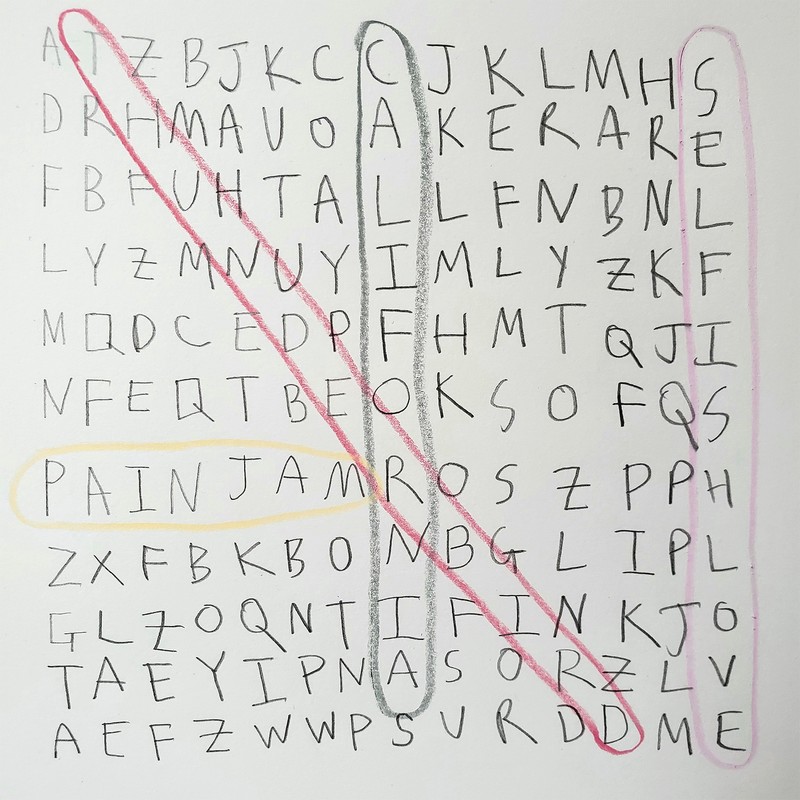 A T Z B J K C C J K L M H S
D R H M A U O A K E R A R E
F B F U H T A L L F N B N L
L Y Z M N U Y I M L Y Z K F
M Q D C E D P F H M T Q J I
N F E Q T B E O K S O F Q S
P A I N J A M R O S Z P P H
Z X F B K B O N B G L I P L
G L Z O Q N T I F I N K J O
T A E Y I P N A S O R Z L V
A E F Z W W P S U R D D M E